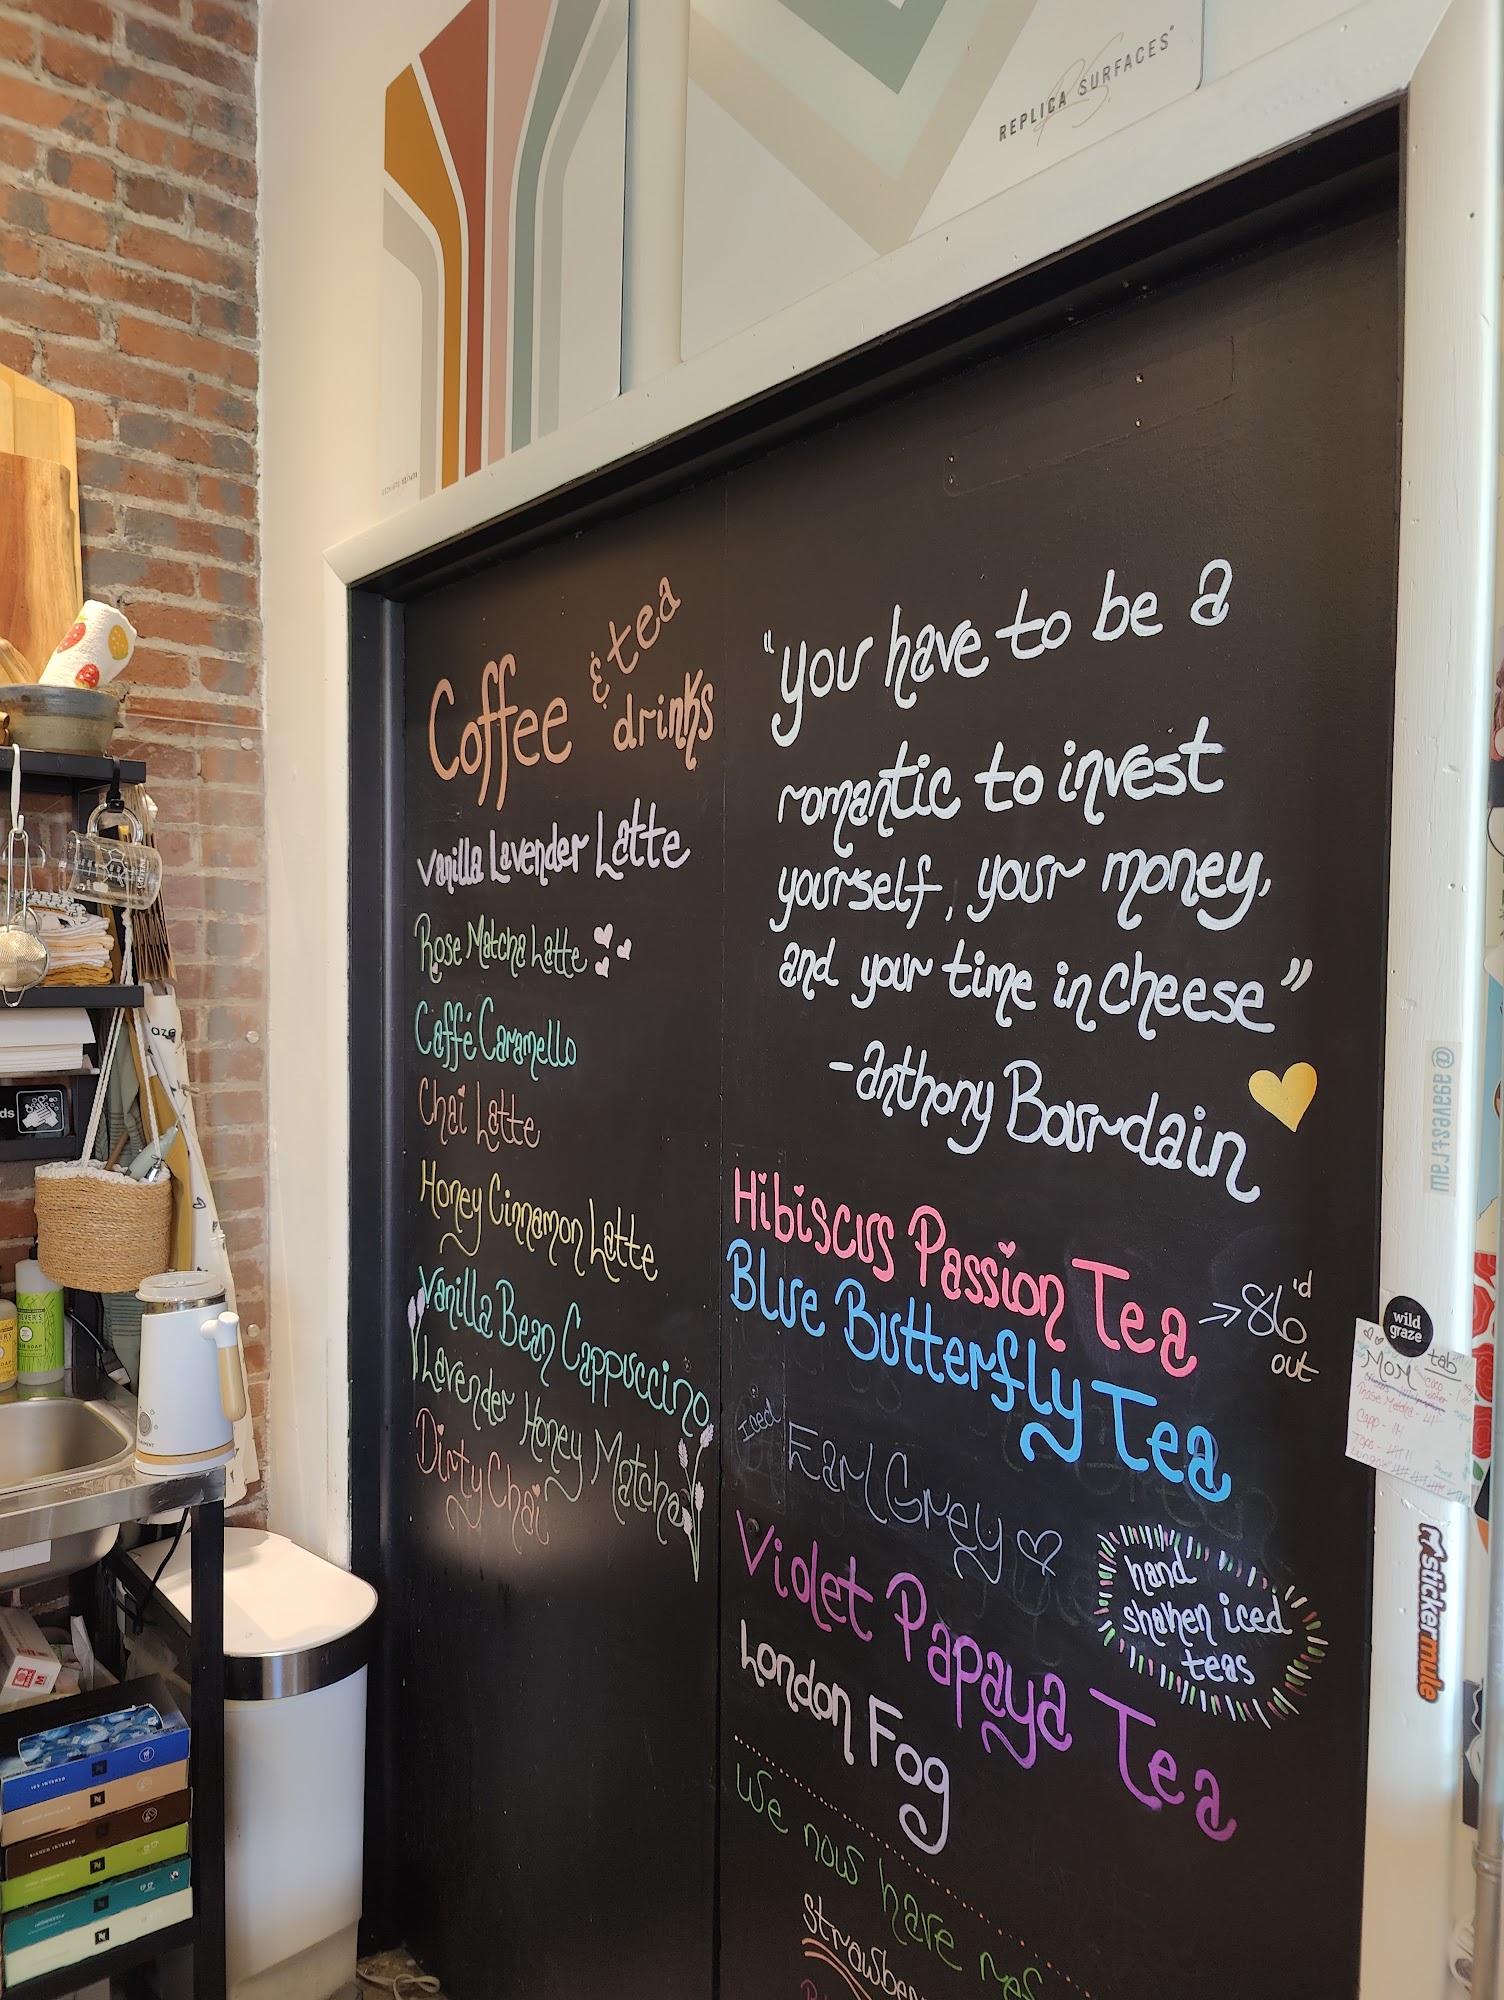 REPLICA SURFACES
Coffee & tea
drinks
Vanilla Lavender Latte
Rose Matcha Latte
Caffé Caramello
Chai Latte
Honey Cinnamon Latte
Vanilla Bean Cappuccino
Lavender Honey Matcha
Dirty Chai
"you have to be a
romantic to invest
yourself, your money,
and your time in cheese"
-anthony Bourdain
Hibiscus Passion Tea
→ 86'd
out
Blue Butterfly Tea
Iced
Earl Grey
Violet Papaya Tea
hand
shaken iced
teas
London Fog
We now have
strawber
wild
graze
MOM tab
Capp -
stickermule